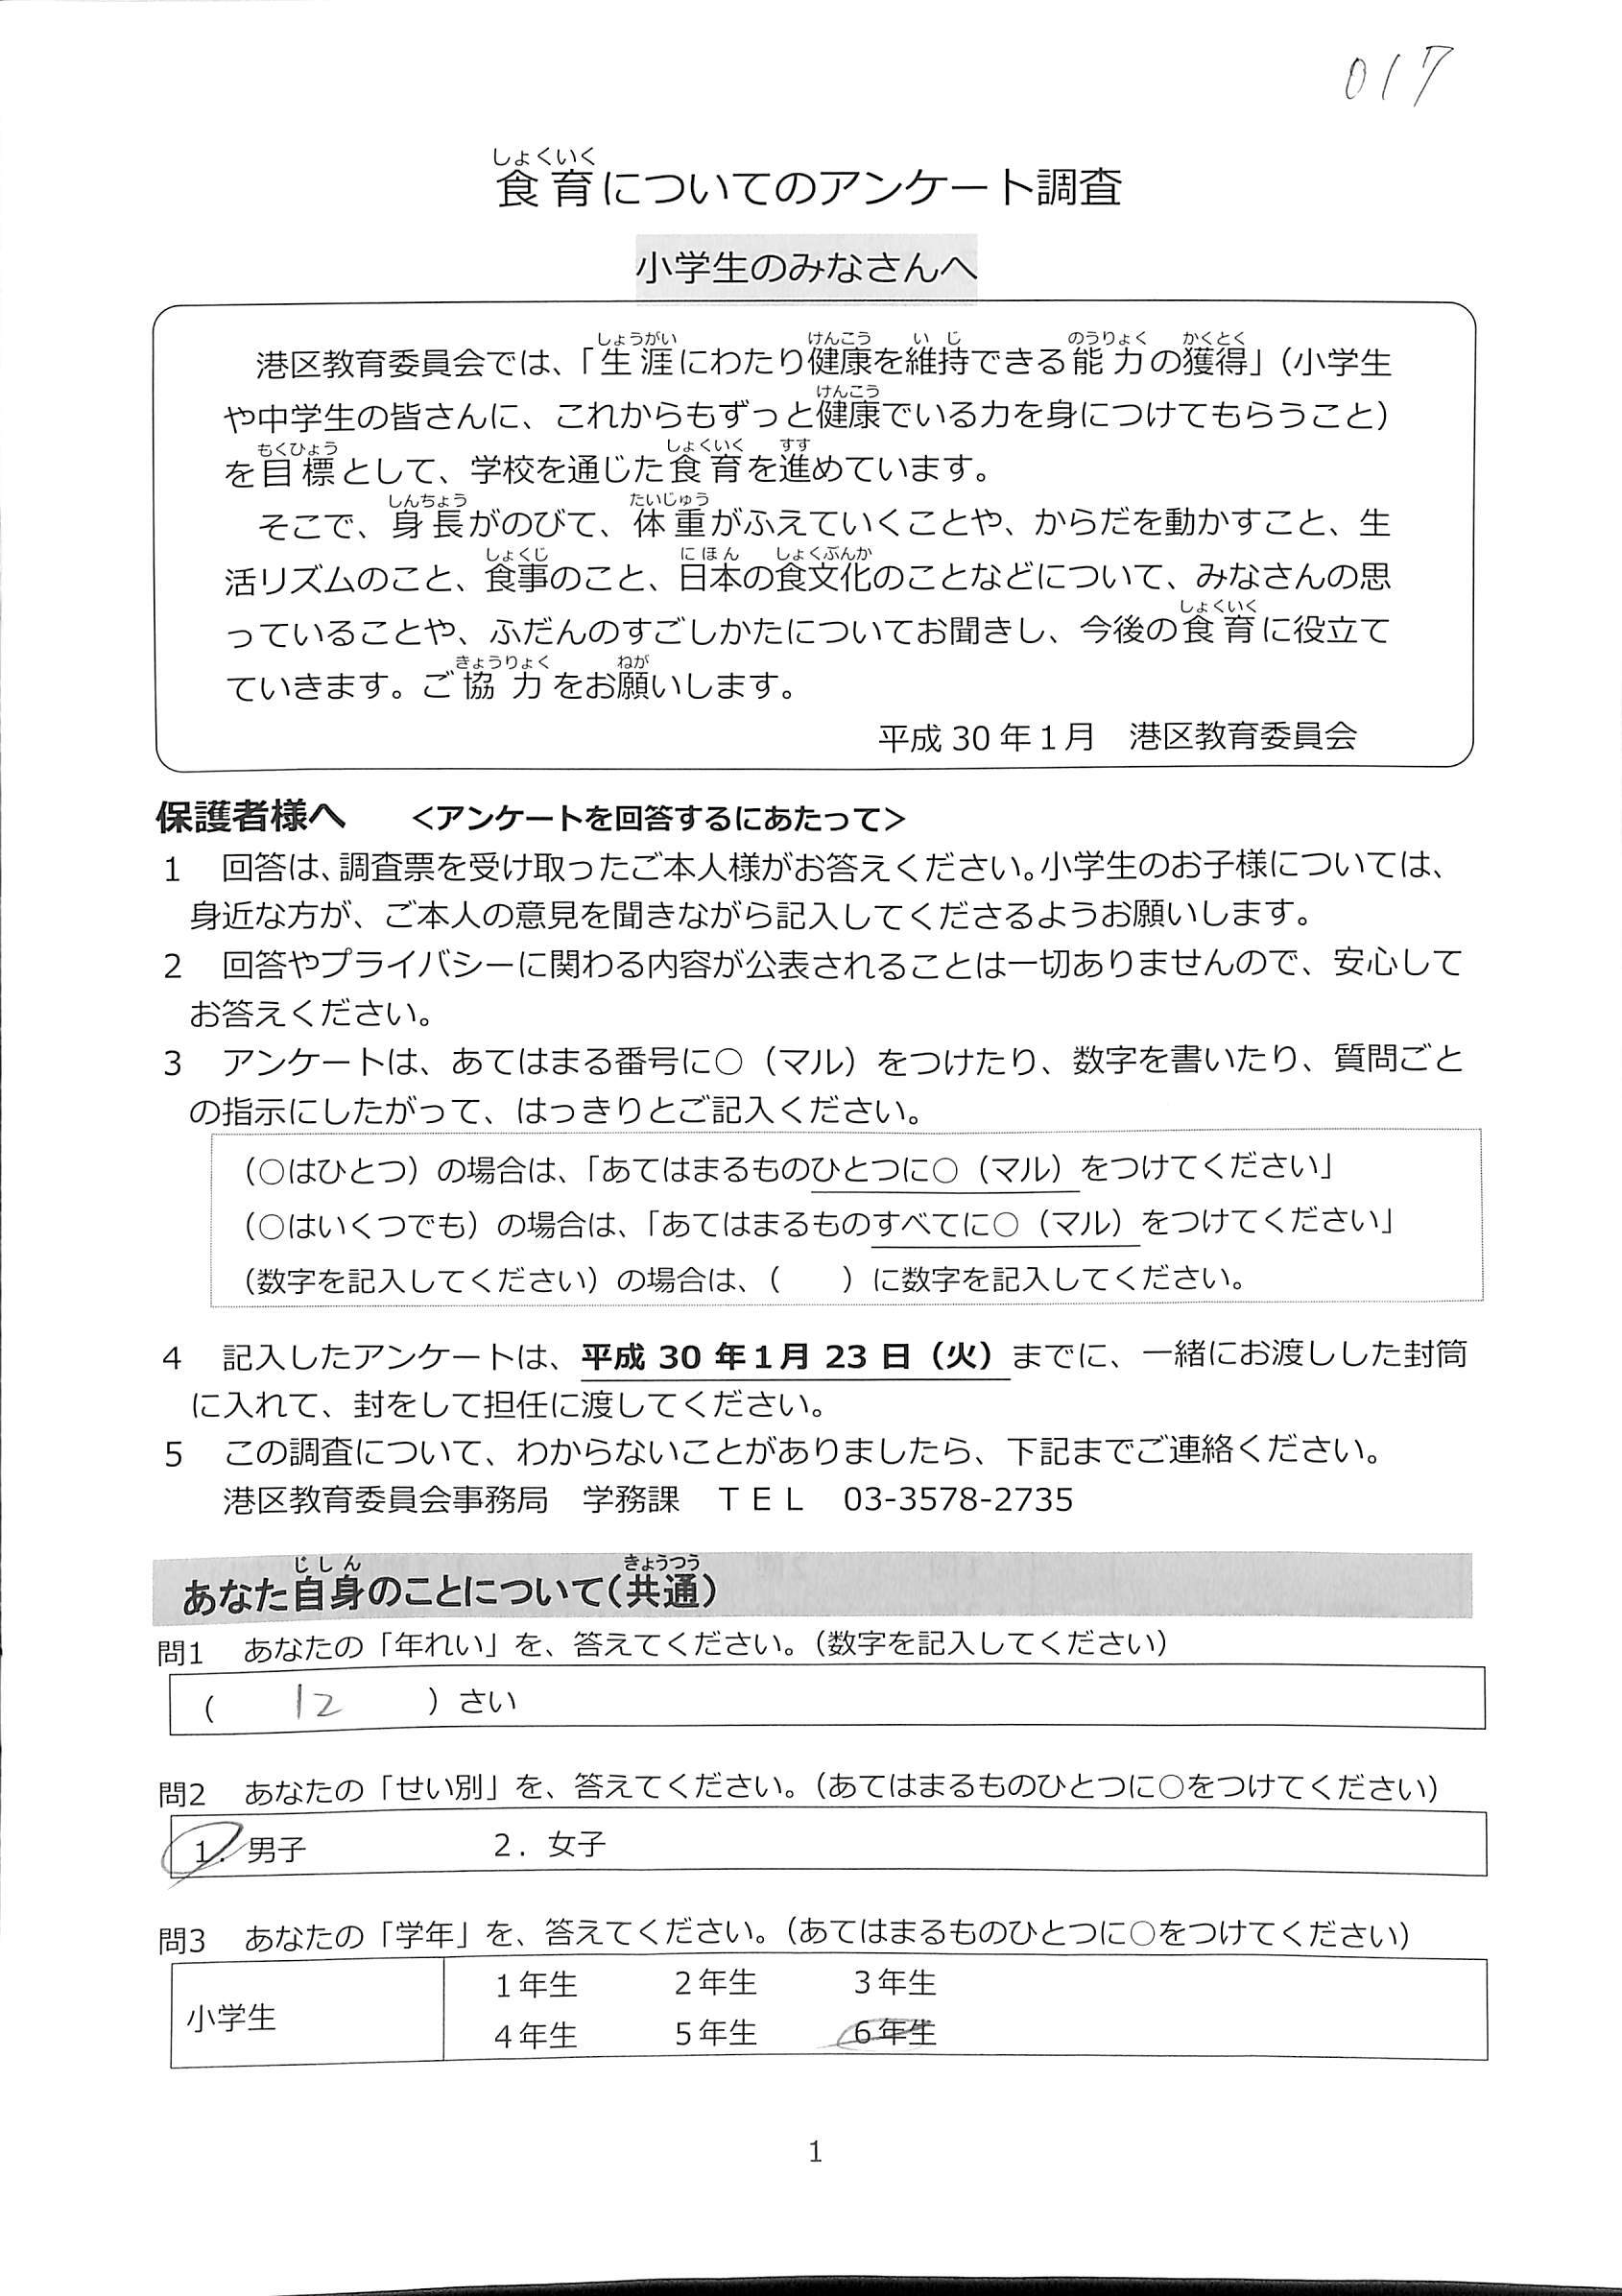 017
しょくいく
食育についてのアンケート調査
小学生のみなさんへ
しょうがい けんこう いじ のうりょく かくとく
港区教育委員会では、「生涯にわたり健康を維持できる能力の獲得」（小学生
けんこう
や中学生の皆さんに、これからもずっと健康でいる力を身につけてもらうこと）
もくひょう しょくいく すす
を目標として、学校を通じた食育を進めています。
しんちょう たいじゅう
そこで、身長がのびて、体重がふえていくことや、からだを動かすこと、生
しょくじ にほん しょくぶんか
活リズムのこと、食事のこと、日本の食文化のことなどについて、みなさんの思
しょくいく
っていることや、ふだんのすごしかたについてお聞きし、今後の食育に役立て
きょうりょく ねが
ていきます。ご協力をお願いします。
平成30年1月 港区教育委員会
保護者様へ ＜アンケートを回答するにあたって＞
1 回答は、調査票を受け取ったご本人様がお答えください。小学生のお子様については、
身近な方が、ご本人の意見を聞きながら記入してくださるようお願いします。
2 回答やプライバシーに関わる内容が公表されることは一切ありませんので、安心して
お答えください。
3 アンケートは、あてはまる番号に○（マル）をつけたり、数字を書いたり、質問ごと
の指示にしたがって、はっきりとご記入ください。
（○はひとつ）の場合は、「あてはまるものひとつに○（マル）をつけてください」
（○はいくつでも）の場合は、「あてはまるものすべてに○（マル）をつけてください」
（数字を記入してください）の場合は、（ ）に数字を記入してください。
4 記入したアンケートは、平成 30 年1月 23 日（火）までに、一緒にお渡しした封筒
に入れて、封をして担任に渡してください。
5 この調査について、わからないことがありましたら、下記までご連絡ください。
港区教育委員会事務局 学務課 ＴＥＬ 03-3578-2735
じしん きょうつう
あなた自身のことについて（共通）
問1 あなたの「年れい」を、答えてください。（数字を記入してください）
（ 12 ）さい
問2 あなたの「せい別」を、答えてください。（あてはまるものひとつに○をつけてください）
1．男子 2．女子
問3 あなたの「学年」を、答えてください。（あてはまるものひとつに○をつけてください）
小学生 1年生 2年生 3年生
4年生 5年生 6年生
1